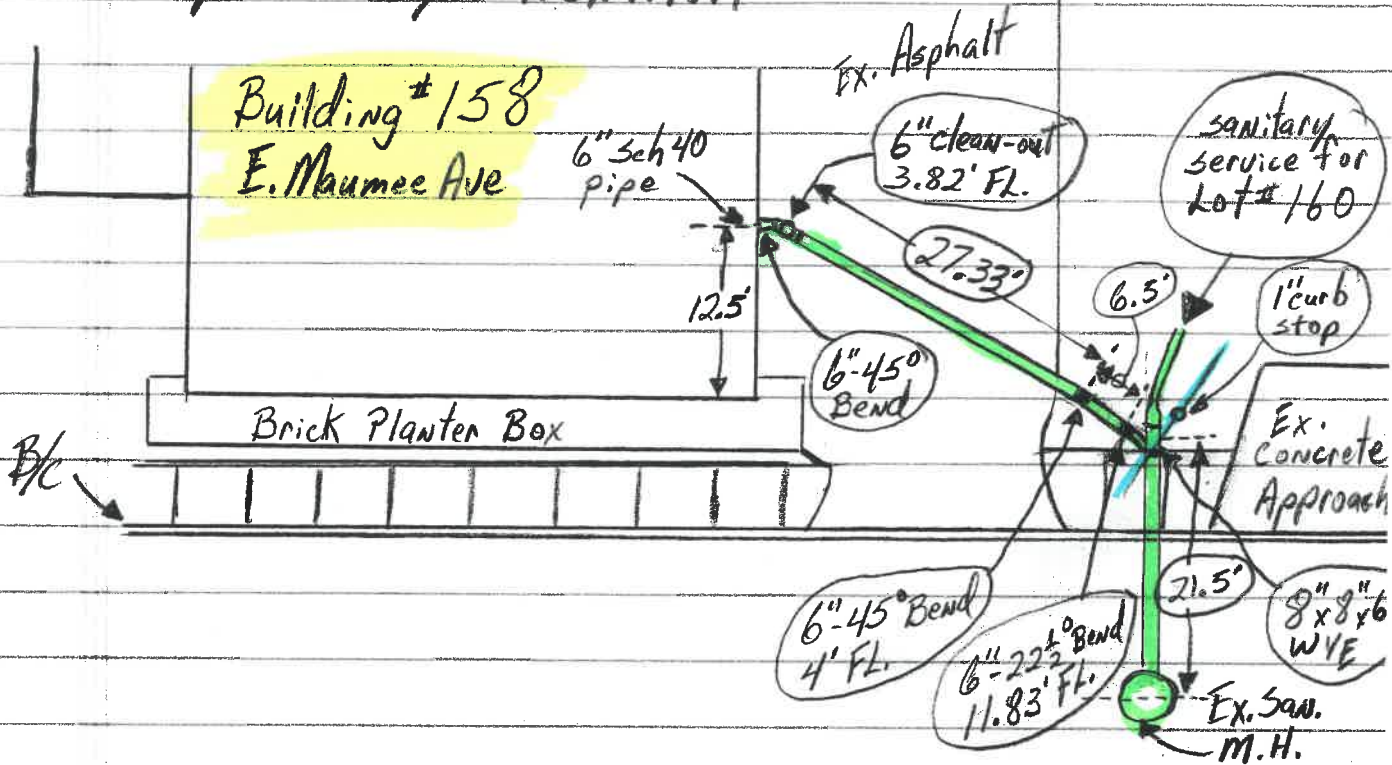 Ex. Asphalt
Building #158
E. Maumee Ave
6" sch 40
pipe
6" clean-out
3.82' FL.
sanitary
service for
Lot #160
27.33'
6.5'
1" curb
stop
12.5'
6"-45°
Bend
Brick Planter Box
Ex.
Concrete
Approach
B/C
6"-45° Bend
4' FL.
6"-22 1/2° Bend
11.83' FL.
21.5'
8"x8"x6
WYE
Ex. San.
M.H.